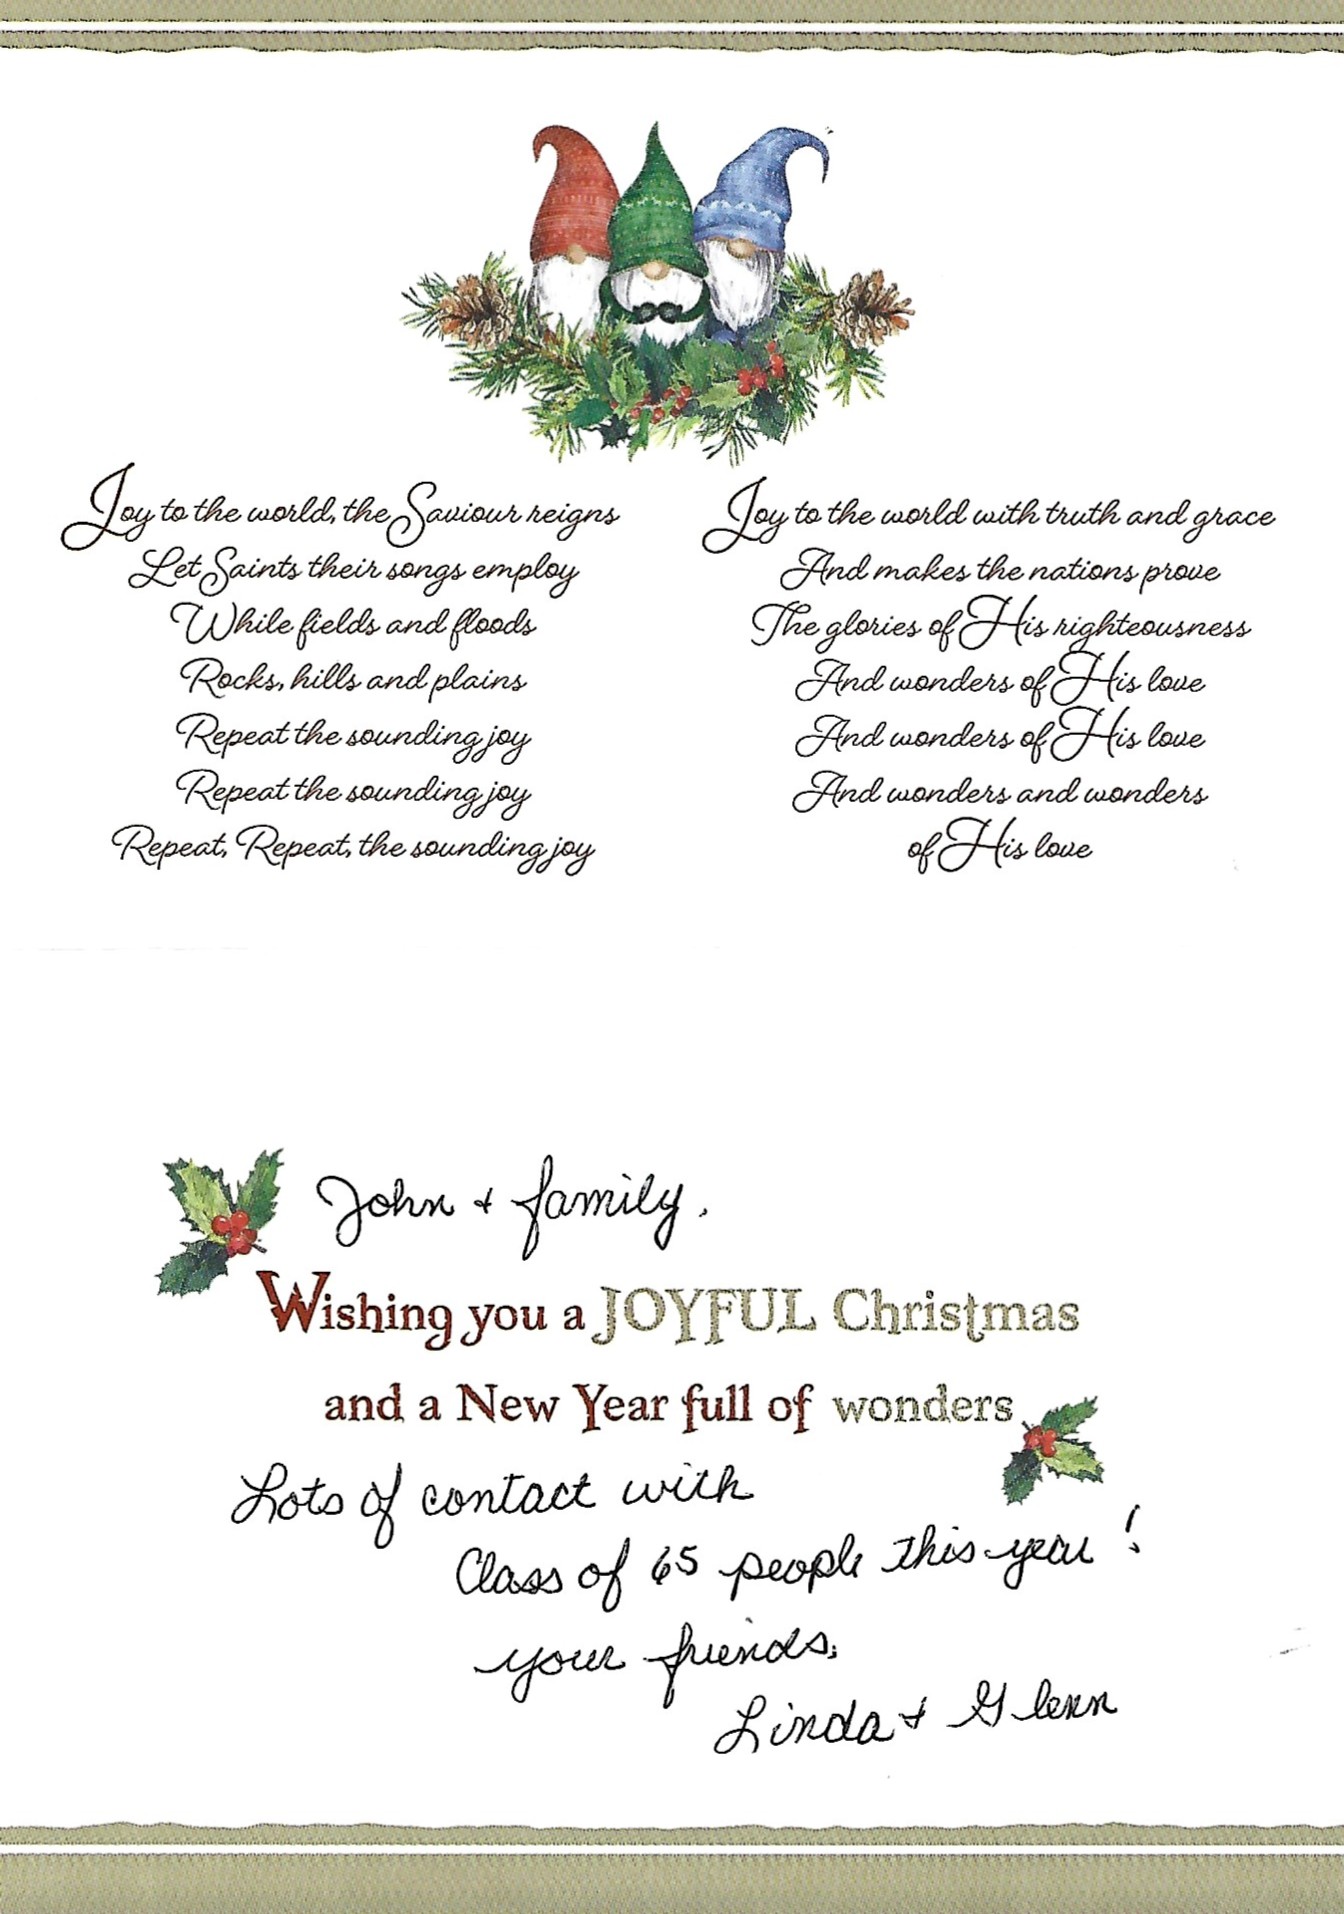 Joy to the world, the Saviour reigns
Let Saints their songs employ
While fields and floods
Rocks, hills and plains
Repeat the sounding joy
Repeat the sounding joy
Repeat, Repeat, the sounding joy
Joy to the world with truth and grace
And makes the nations prove
The glories of His righteousness
And wonders of His love
And wonders of His love
And wonders and wonders
of His love
John + family,
Wishing you a JOYFUL Christmas
and a New Year full of wonders
Lots of contact with
Class of 65 people this year!
your friends,
Linda + Glenn